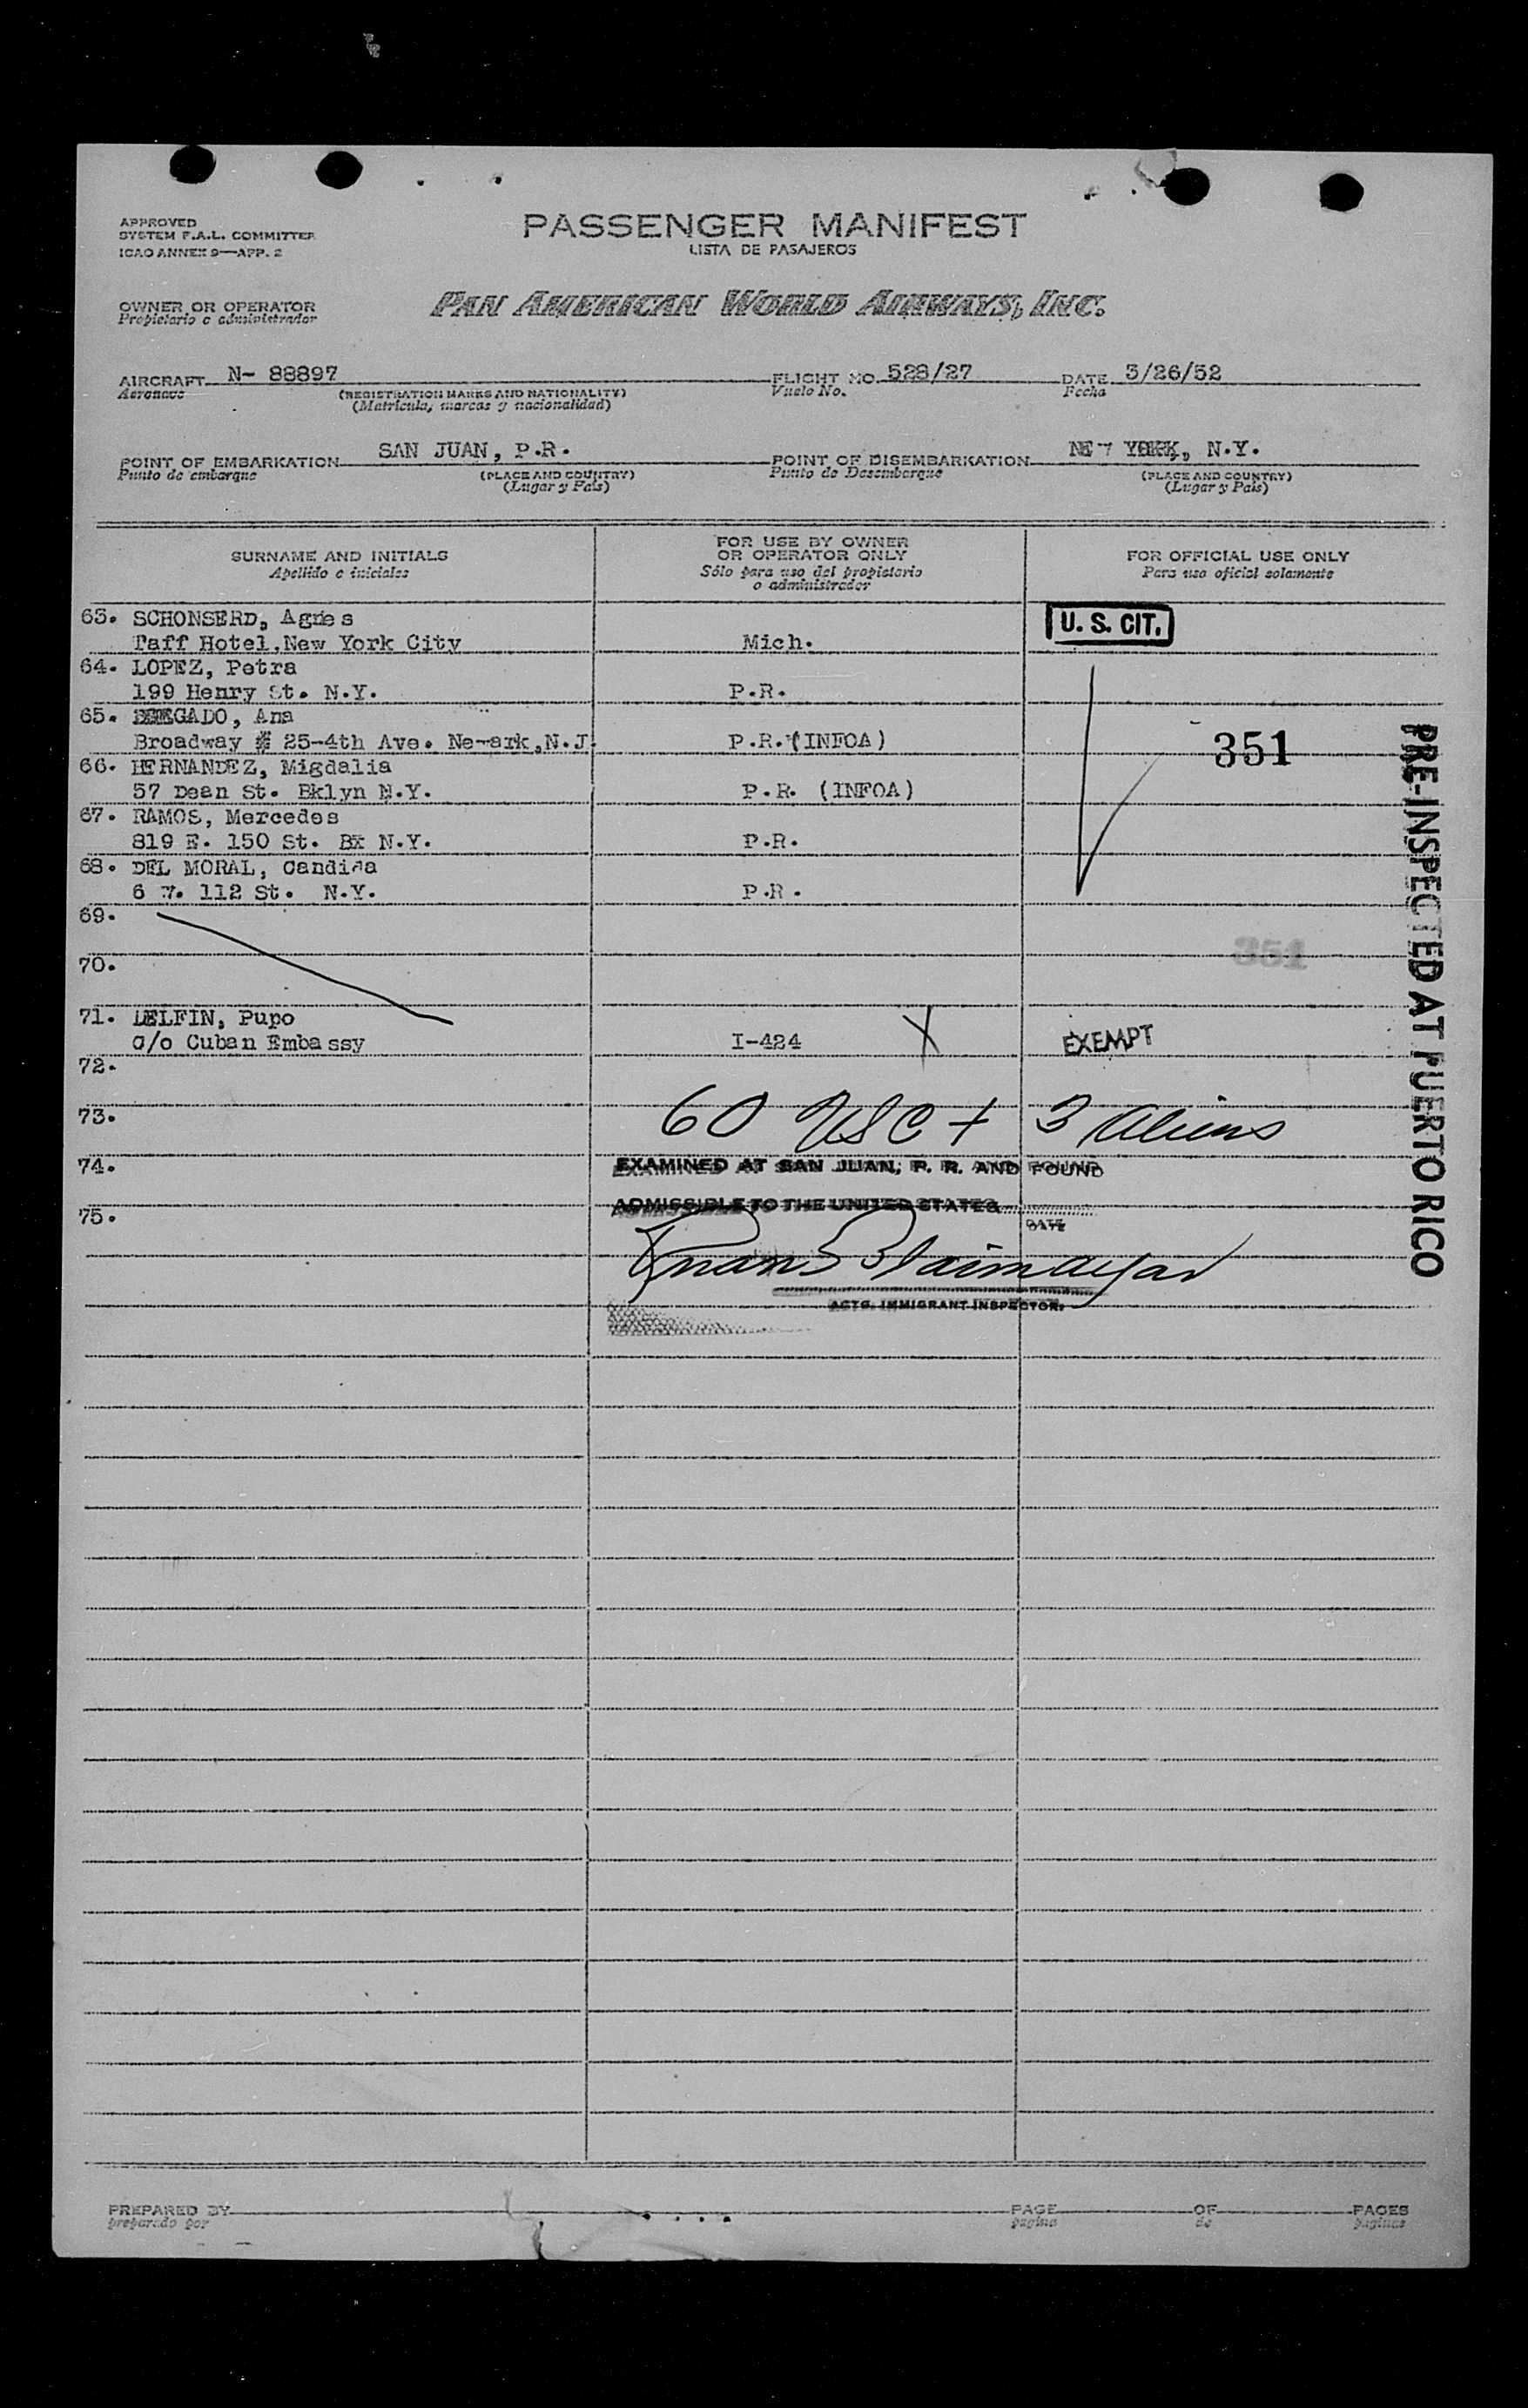 APPROVED
SYSTEM F.A.L. COMMITTEE
ICAO ANNEX 9—APP. 2
PASSENGER MANIFEST
LISTA DE PASAJEROS
OWNER OR OPERATOR
Propietario o administrador
PAN AMERICAN WORLD AIRWAYS, INC.
AIRCRAFT N- 88897
Aeronave
(REGISTRATION MARKS AND NATIONALITY)
(Matricula, marcas y nacionalidad)
FLIGHT NO. 528/27
Vuelo No.
DATE 3/26/52
Fecha
POINT OF EMBARKATION SAN JUAN, P.R.
Punto de embarque
(PLACE AND COUNTRY)
(Lugar y País)
POINT OF DISEMBARKATION NEW YORK, N.Y.
Punto de Desembarque
(PLACE AND COUNTRY)
(Lugar y País)
SURNAME AND INITIALS
Apellido e iniciales
FOR USE BY OWNER
OR OPERATOR ONLY
Sólo para uso del propietario
o administrador
FOR OFFICIAL USE ONLY
Para uso oficial solamente
63. SCHONSERD, Agnes
Taff Hotel, New York City Mich. U. S. CIT.
64. LOPEZ, Petra
199 Henry St. N.Y. P.R.
65. DELGADO, Ana
Broadway # 25-4th Ave. Newark, N.J. P.R. (INFOA) 351
66. HERNANDEZ, Migdalia
57 Dean St. Bklyn N.Y. P.R. (INFOA)
67. RAMOS, Mercedes
819 E. 150 St. BX N.Y. P.R.
68. DEL MORAL, Candida
6 W. 112 St. N.Y. P.R.
69.
351
70.
71. DELFIN, Pupo
c/o Cuban Embassy I-424 X EXEMPT
72.
73. 60 USC + 3 Aliens
74. EXAMINED AT SAN JUAN, P. R. AND FOUND
ADMISSIBLE TO THE UNITED STATES
75.
DATE
ACTG. IMMIGRANT INSPECTOR.
PRE-INSPECTED AT PUERTO RICO
PREPARED BY
preparado por
PAGE OF PAGES
pagina de paginas